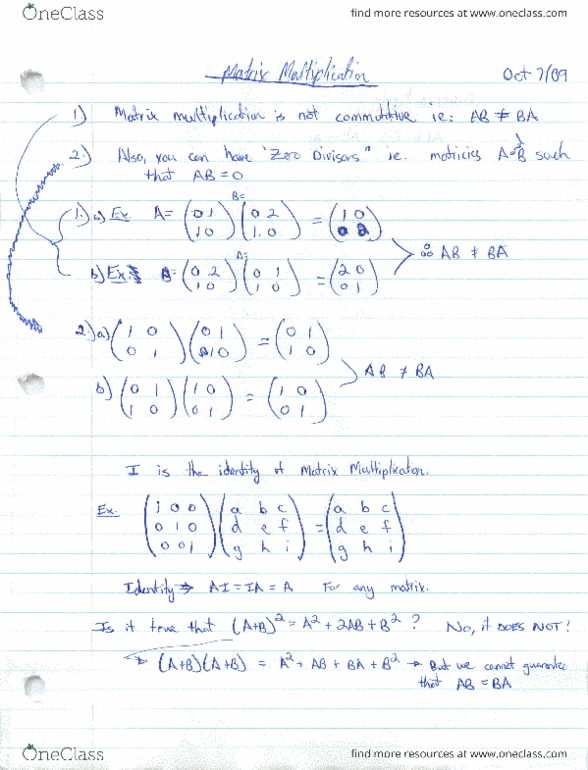 OneClass find more resources at www.oneclass.com
Matrix Multiplication Oct 7/09
1) Matrix multiplication is not commutitive ie: AB ≠ BA
2.) Also, you can have "Zero Divisors" ie. matricies A or B such
that AB = 0
1.) a) Ex A = (0 1 / 1 0) B= (0 2 / 1 0) = (1 0 / 0 2)
∴ AB ≠ BA
b) Ex B = (0 2 / 1 0) A= (0 1 / 1 0) = (2 0 / 0 1)
2.) a) (1 0 / 0 1) (0 1 / 1 0) = (0 1 / 1 0)
AB ≠ BA
b) (0 1 / 1 0) (1 0 / 0 1) = (1 0 / 0 1)
I is the identity of Matrix Multiplication.
Ex. (1 0 0 / 0 1 0 / 0 0 1) (a b c / d e f / g h i) = (a b c / d e f / g h i)
Identity ⇒ AI = IA = A For any matrix.
Is it true that (A+B)² = A² + 2AB + B² ? No, it DOES NOT!
→ (A+B)(A+B) = A² + AB + BA + B² → But we cannot guarantee
that AB = BA
OneClass find more resources at www.oneclass.com